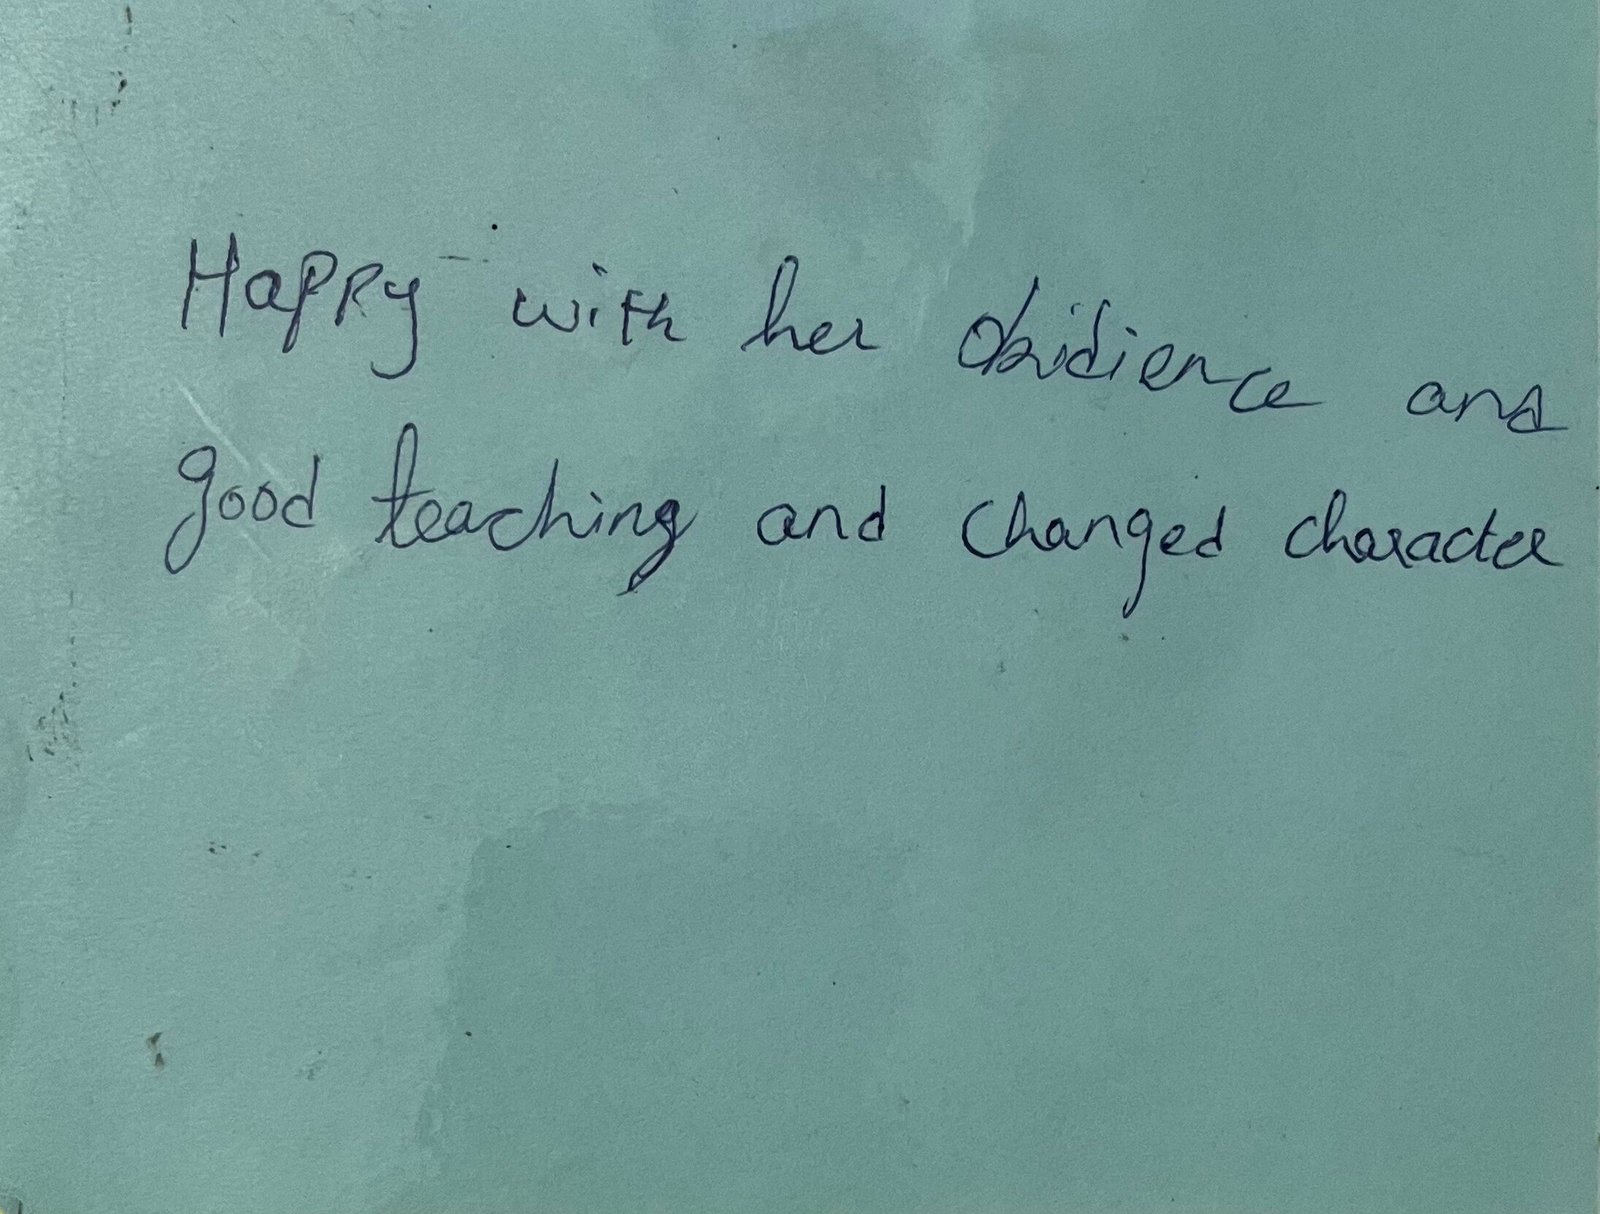 Happy with her obidience and
good teaching and changed character